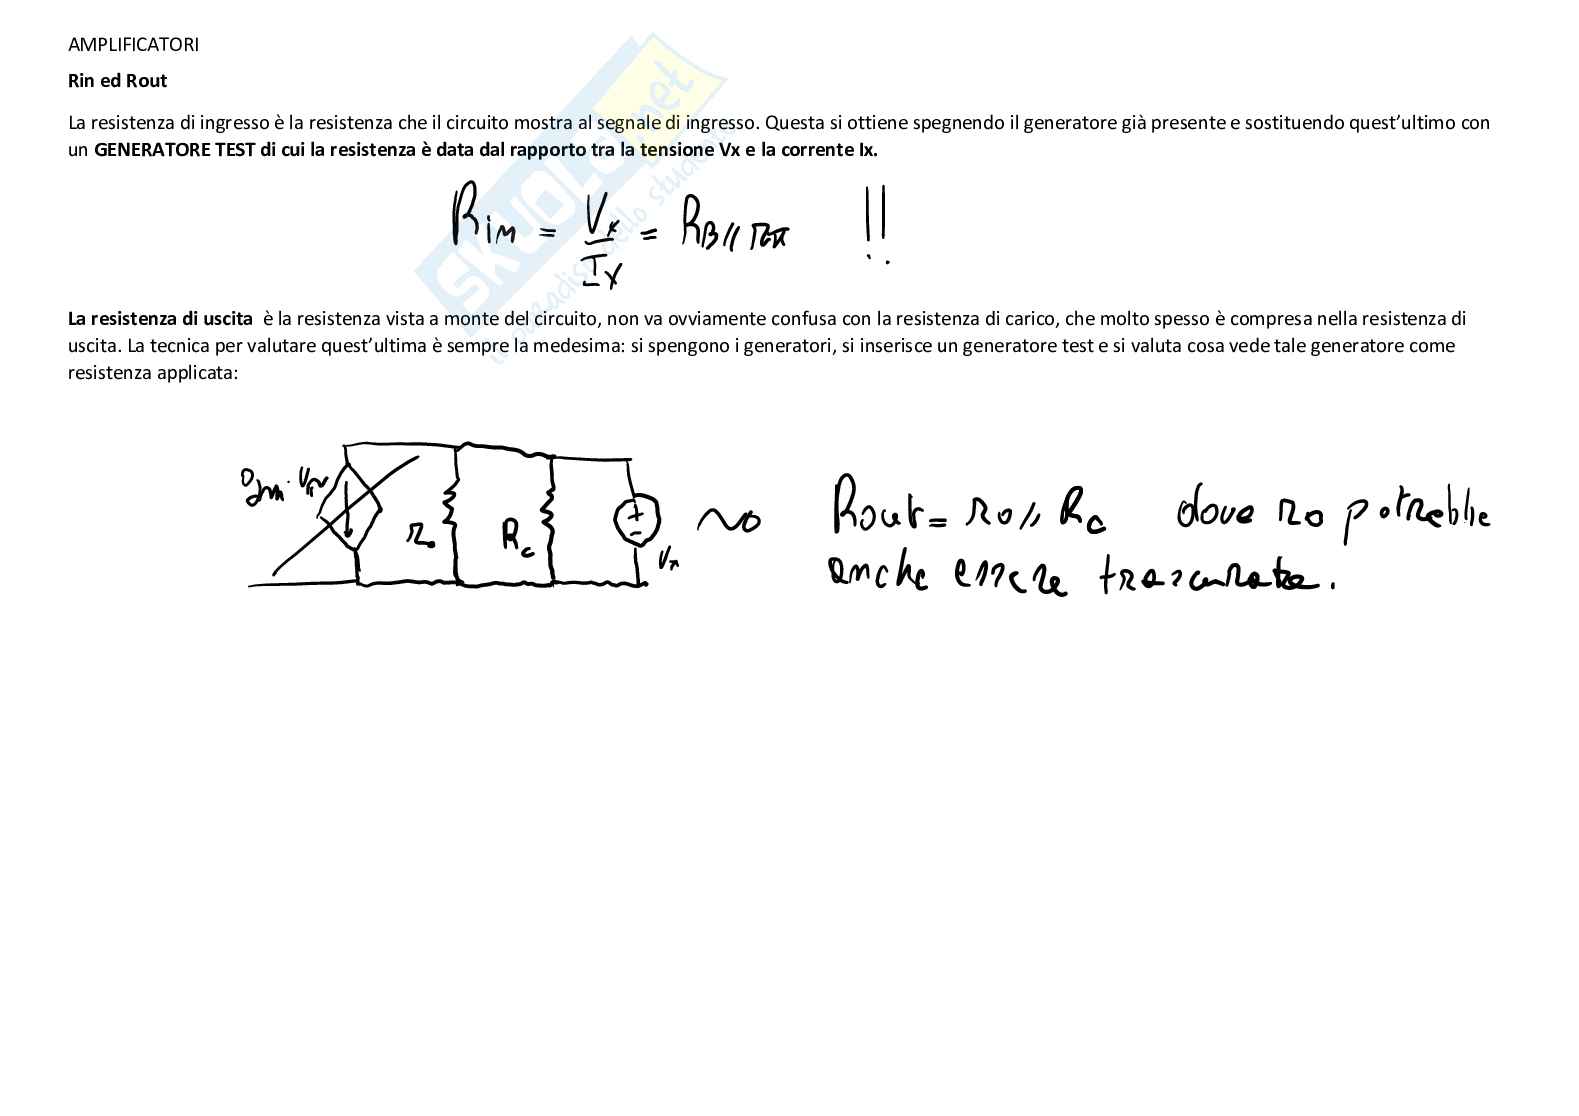 AMPLIFICATORI
Rin ed Rout
La resistenza di ingresso è la resistenza che il circuito mostra al segnale di ingresso. Questa si ottiene spegnendo il generatore già presente e sostituendo quest'ultimo con
un GENERATORE TEST di cui la resistenza è data dal rapporto tra la tensione Vx e la corrente Ix.
Rin = Vx / Ix = RB // rπ !!
La resistenza di uscita è la resistenza vista a monte del circuito, non va ovviamente confusa con la resistenza di carico, che molto spesso è compresa nella resistenza di
uscita. La tecnica per valutare quest'ultima è sempre la medesima: si spengono i generatori, si inserisce un generatore test e si valuta cosa vede tale generatore come
resistenza applicata:
gm · Vπ
ro
Rc
+
-
Vx
Rout = ro // Rc dove ro potrebbe
anche essere trascurata.
SKUOLA.net
il paradiso dello studente